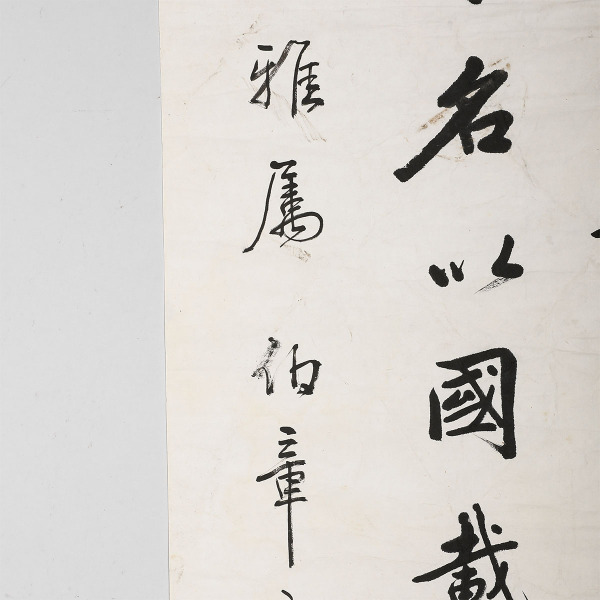 名以國載
雅屬伯章